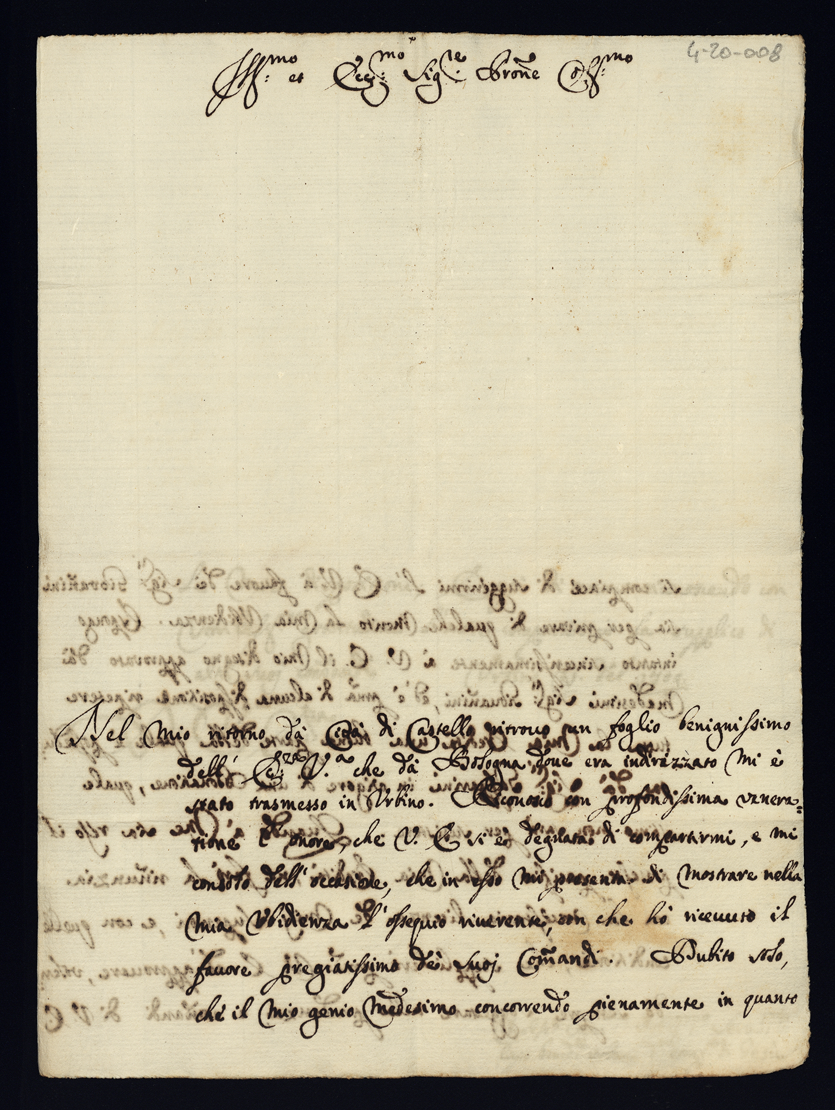 4-20-008
Ill:mo et Ecc:mo Sig:re Pron̄e Col:mo
Nel mio ritorno dà Città di Castello ritrovo un foglio benignissimo
dell' Ecc:za V:a che dà Bologna dove era indirizzato mi è
stato trasmesso in Urbino. Riconosco con profondissima venera=
tione l'onore, che V. E. si è degnata di compartirmi, e mi
consolo dell' occasione, che in esso mi presenta di mostrare nella
mia ubidienza l'ossequio riverente, con che hò ricevuto il
favore pregiatissimo dè suoj Com̄andi. Dubito solo,
che il mio genio medesimo concorrendo pienamente in quanto